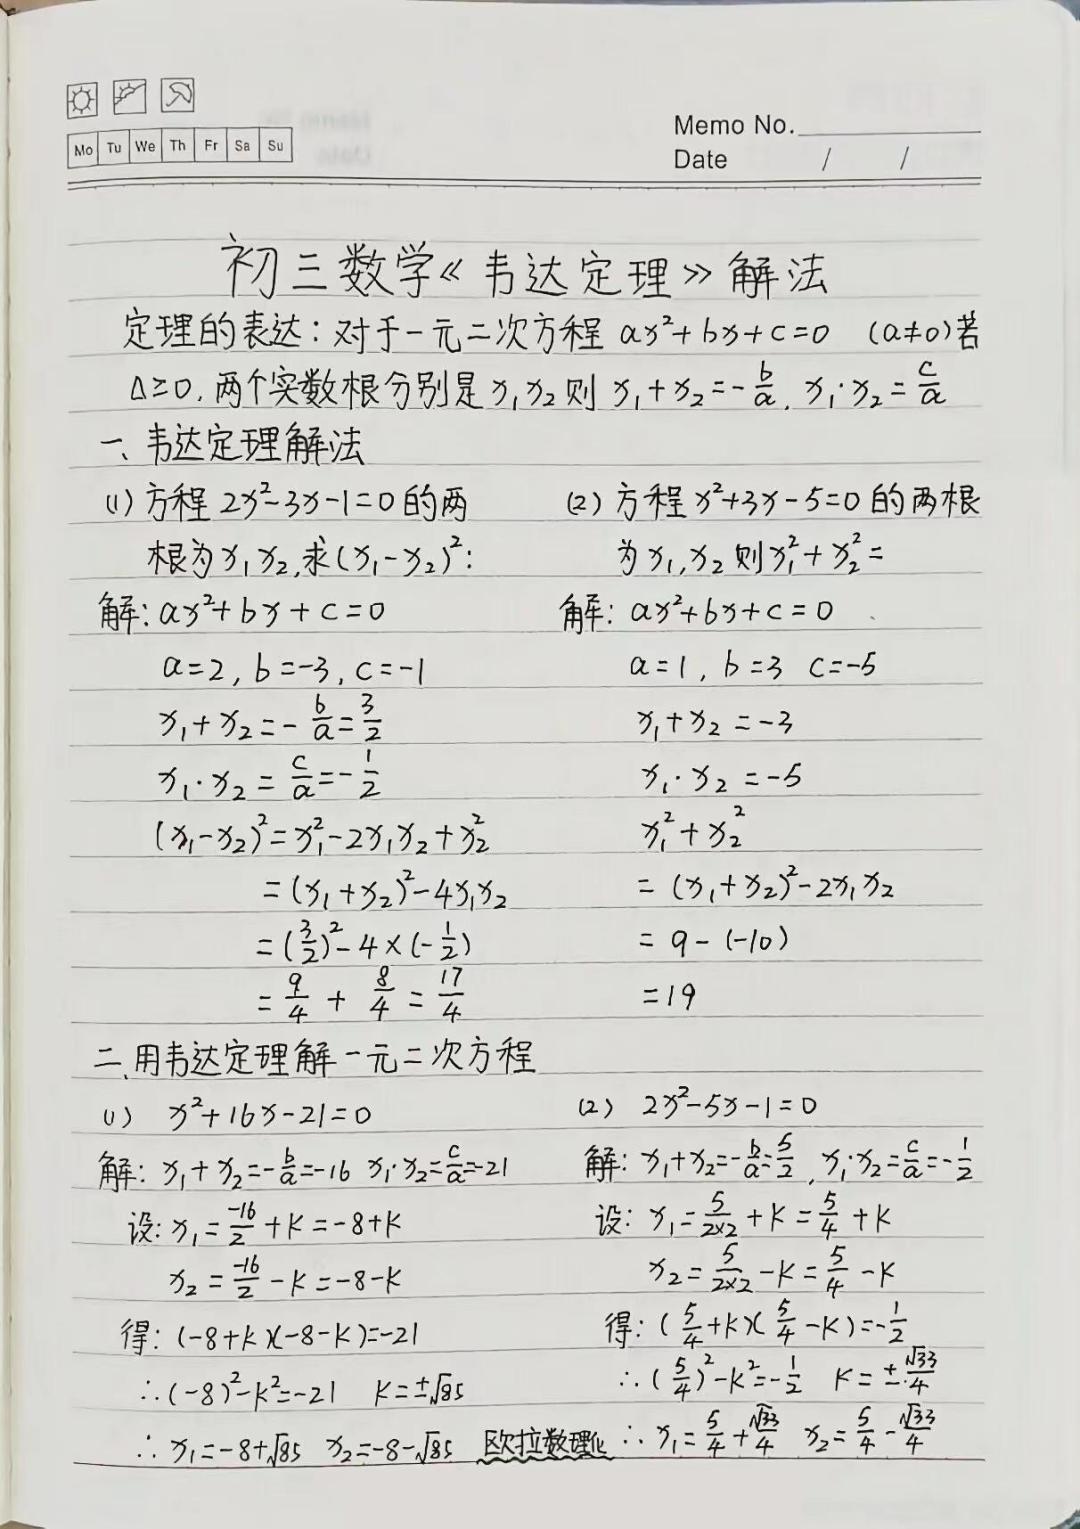 Mo Tu We Th Fr Sa Su
Memo No.
Date / /
初三数学《韦达定理》解法
定理的表达:对于一元二次方程 ax²+bx+c=0 (a≠0)若
Δ≥0,两个实数根分别是x₁x₂则 x₁+x₂=-b/a, x₁·x₂=c/a
一、韦达定理解法
(1)方程 2x²-3x-1=0的两
根为x₁x₂,求(x₁-x₂)²:
解:ax²+bx+c=0
a=2, b=-3, c=-1
x₁+x₂=-b/a=3/2
x₁·x₂=c/a=-1/2
(x₁-x₂)²=x₁²-2x₁x₂+x₂²
=(x₁+x₂)²-4x₁x₂
=(3/2)²-4×(-1/2)
=9/4+8/4=17/4
(2)方程x²+3x-5=0的两根
为x₁,x₂则x₁²+x₂²=
解:ax²+bx+c=0
a=1, b=3 c=-5
x₁+x₂=-3
x₁·x₂=-5
x₁²+x₂²
=(x₁+x₂)²-2x₁x₂
=9-(-10)
=19
二、用韦达定理解一元二次方程
(1) x²+16x-21=0
解:x₁+x₂=-b/a=-16 x₁·x₂=c/a=-21
设:x₁=-16/2+K=-8+K
x₂=-16/2-K=-8-K
得:(-8+K)(-8-K)=-21
∴(-8)²-K²=-21 K=±√85
∴x₁=-8+√85 x₂=-8-√85
(2) 2x²-5x-1=0
解:x₁+x₂=-b/a=5/2, x₁·x₂=c/a=-1/2
设:x₁=5/2×2+K=5/4+K
x₂=5/2×2-K=5/4-K
得:(5/4+K)(5/4-K)=-1/2
∴(5/4)²-K²=-1/2 K=±√33/4
∴x₁=5/4+√33/4 x₂=5/4-√33/4
欧拉数理化